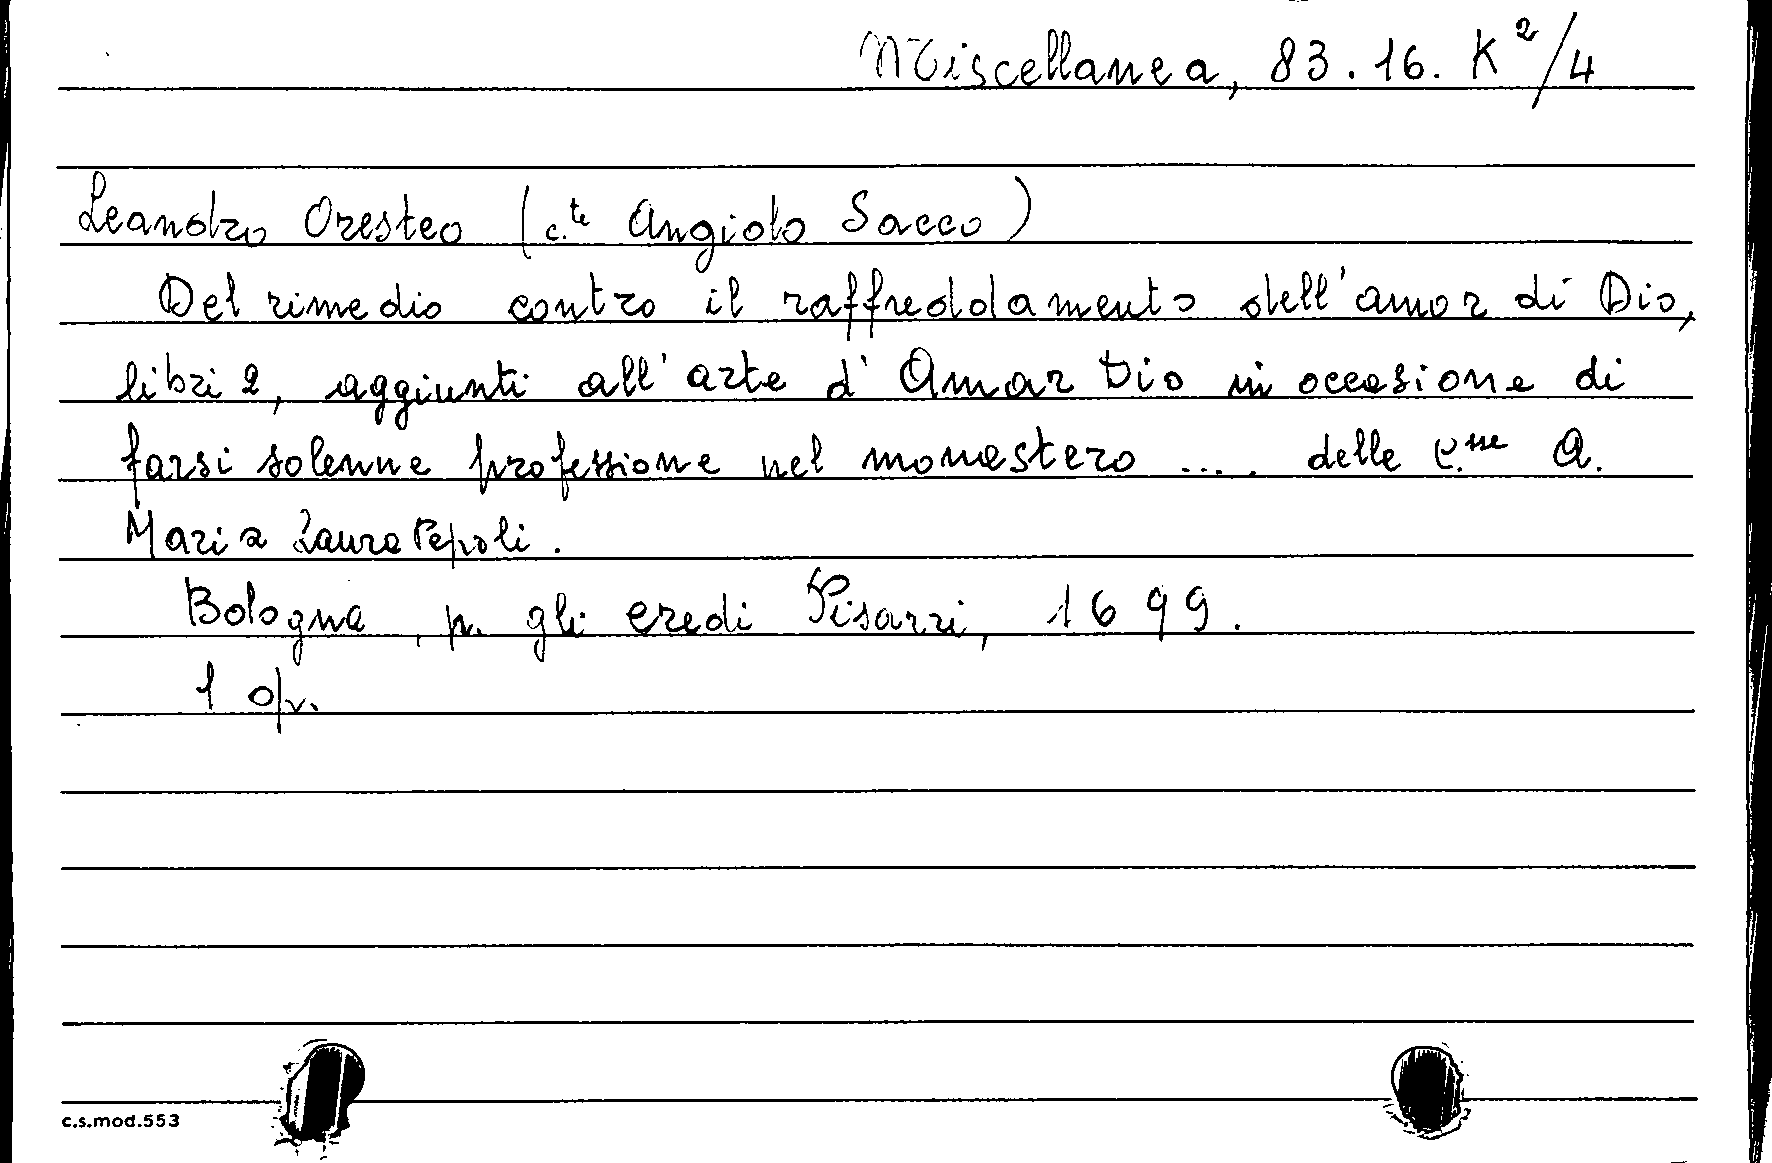 Miscellanea, 83.16. K²/4
Leandro Oresteo (c.te Angiolo Sacco)
Del rimedio contro il raffreddamento dell'amor di Dio,
libri 2, aggiunti all'arte d'Amar Dio in occasione di
farsi solenne professione nel monastero .... delle C.sse A.
Maria Laura Pepoli.
Bologna, p. gli eredi Pisarri, 1699.
1 op.
c.s.mod.553